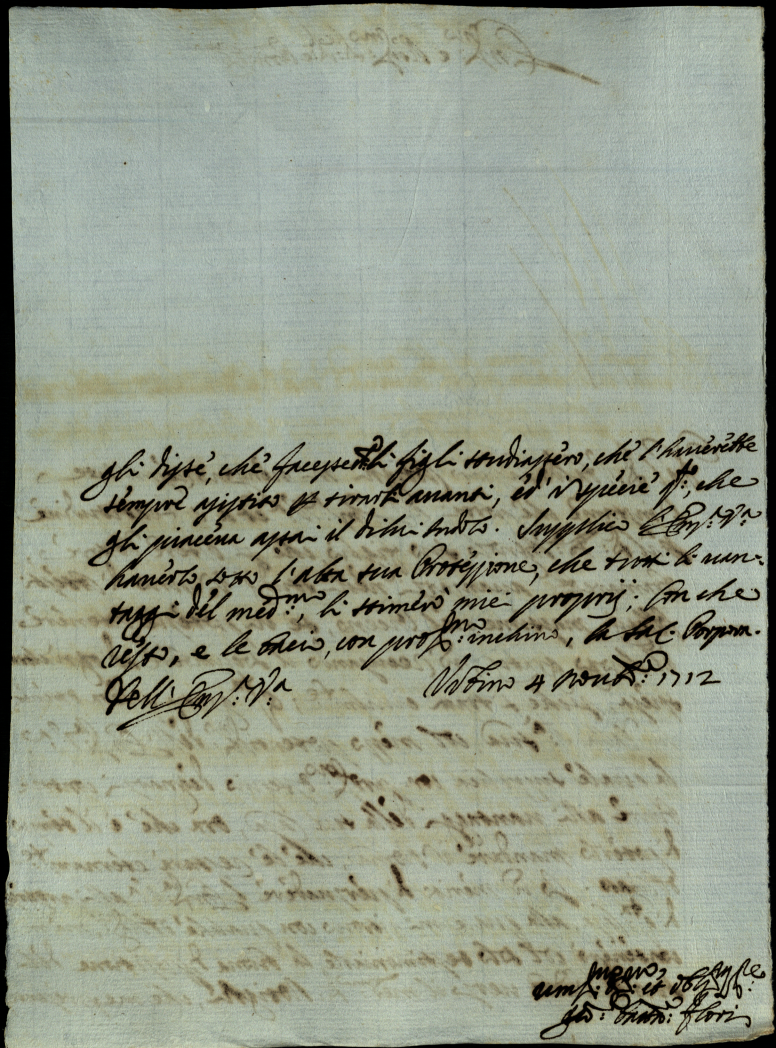 gli disse, che facesse che li figli studiassero, che l'haverebbe
sempre assistito p tirarli avanti, ed i specie qto, che
gli piaceva assai il di lui Indole. Supplico l'Em.a V.a
haverlo sotto l'alta sua Protezzione, che tutti li van-
taggi del med.mo, li stimerò miei proprij; Con che
resto, e le bacio, con prof.mo inchino, la Sac. Porpora.
Dell' Em.a V.a Urbino 4 Novb.e 1712
Um.o et obl.mo
Flori